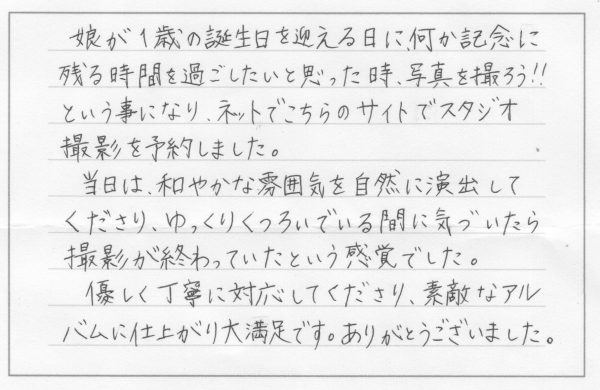 娘が1歳の誕生日を迎える日に、何か記念に
残る時間を過ごしたいと思った時、写真を撮ろう!!
という事になり、ネットでこちらのサイトでスタジオ
撮影を予約しました。
当日は、和やかな雰囲気を自然に演出して
くださり、ゆっくりくつろいでいる間に気づいたら
撮影が終わっていたという感覚でした。
優しく丁寧に対応してくださり、素敵なアル
バムに仕上がり大満足です。ありがとうございました。